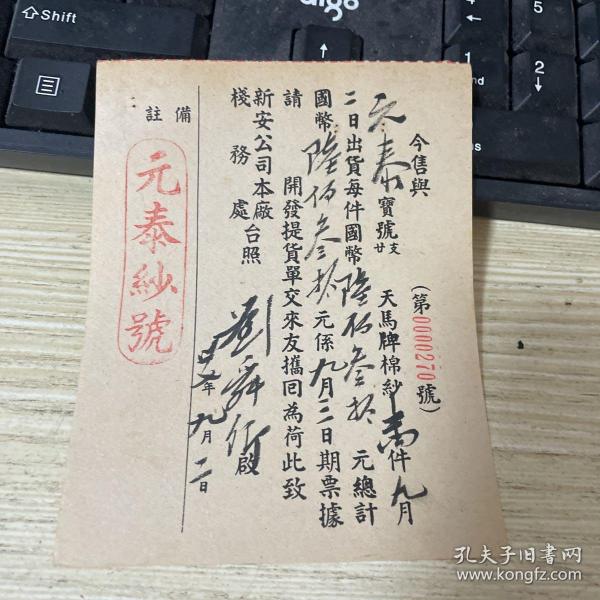 今售與 (第0000270號)
元泰寶號 廿支 天馬牌棉紗壹件九月
二日出貨每件國幣陸佰叁拾元總計
國幣陸佰叁拾元係九月二日期票據
請 開發提貨單交來友攜回為荷此致
新安公司本廠
棧務處
台照
劉舜 啟
年九月二日
備註
元泰紗號
⇧Shift
aigo
↑
1
End
2
↓
4
5
孔夫子旧書网
www.kongfz.com